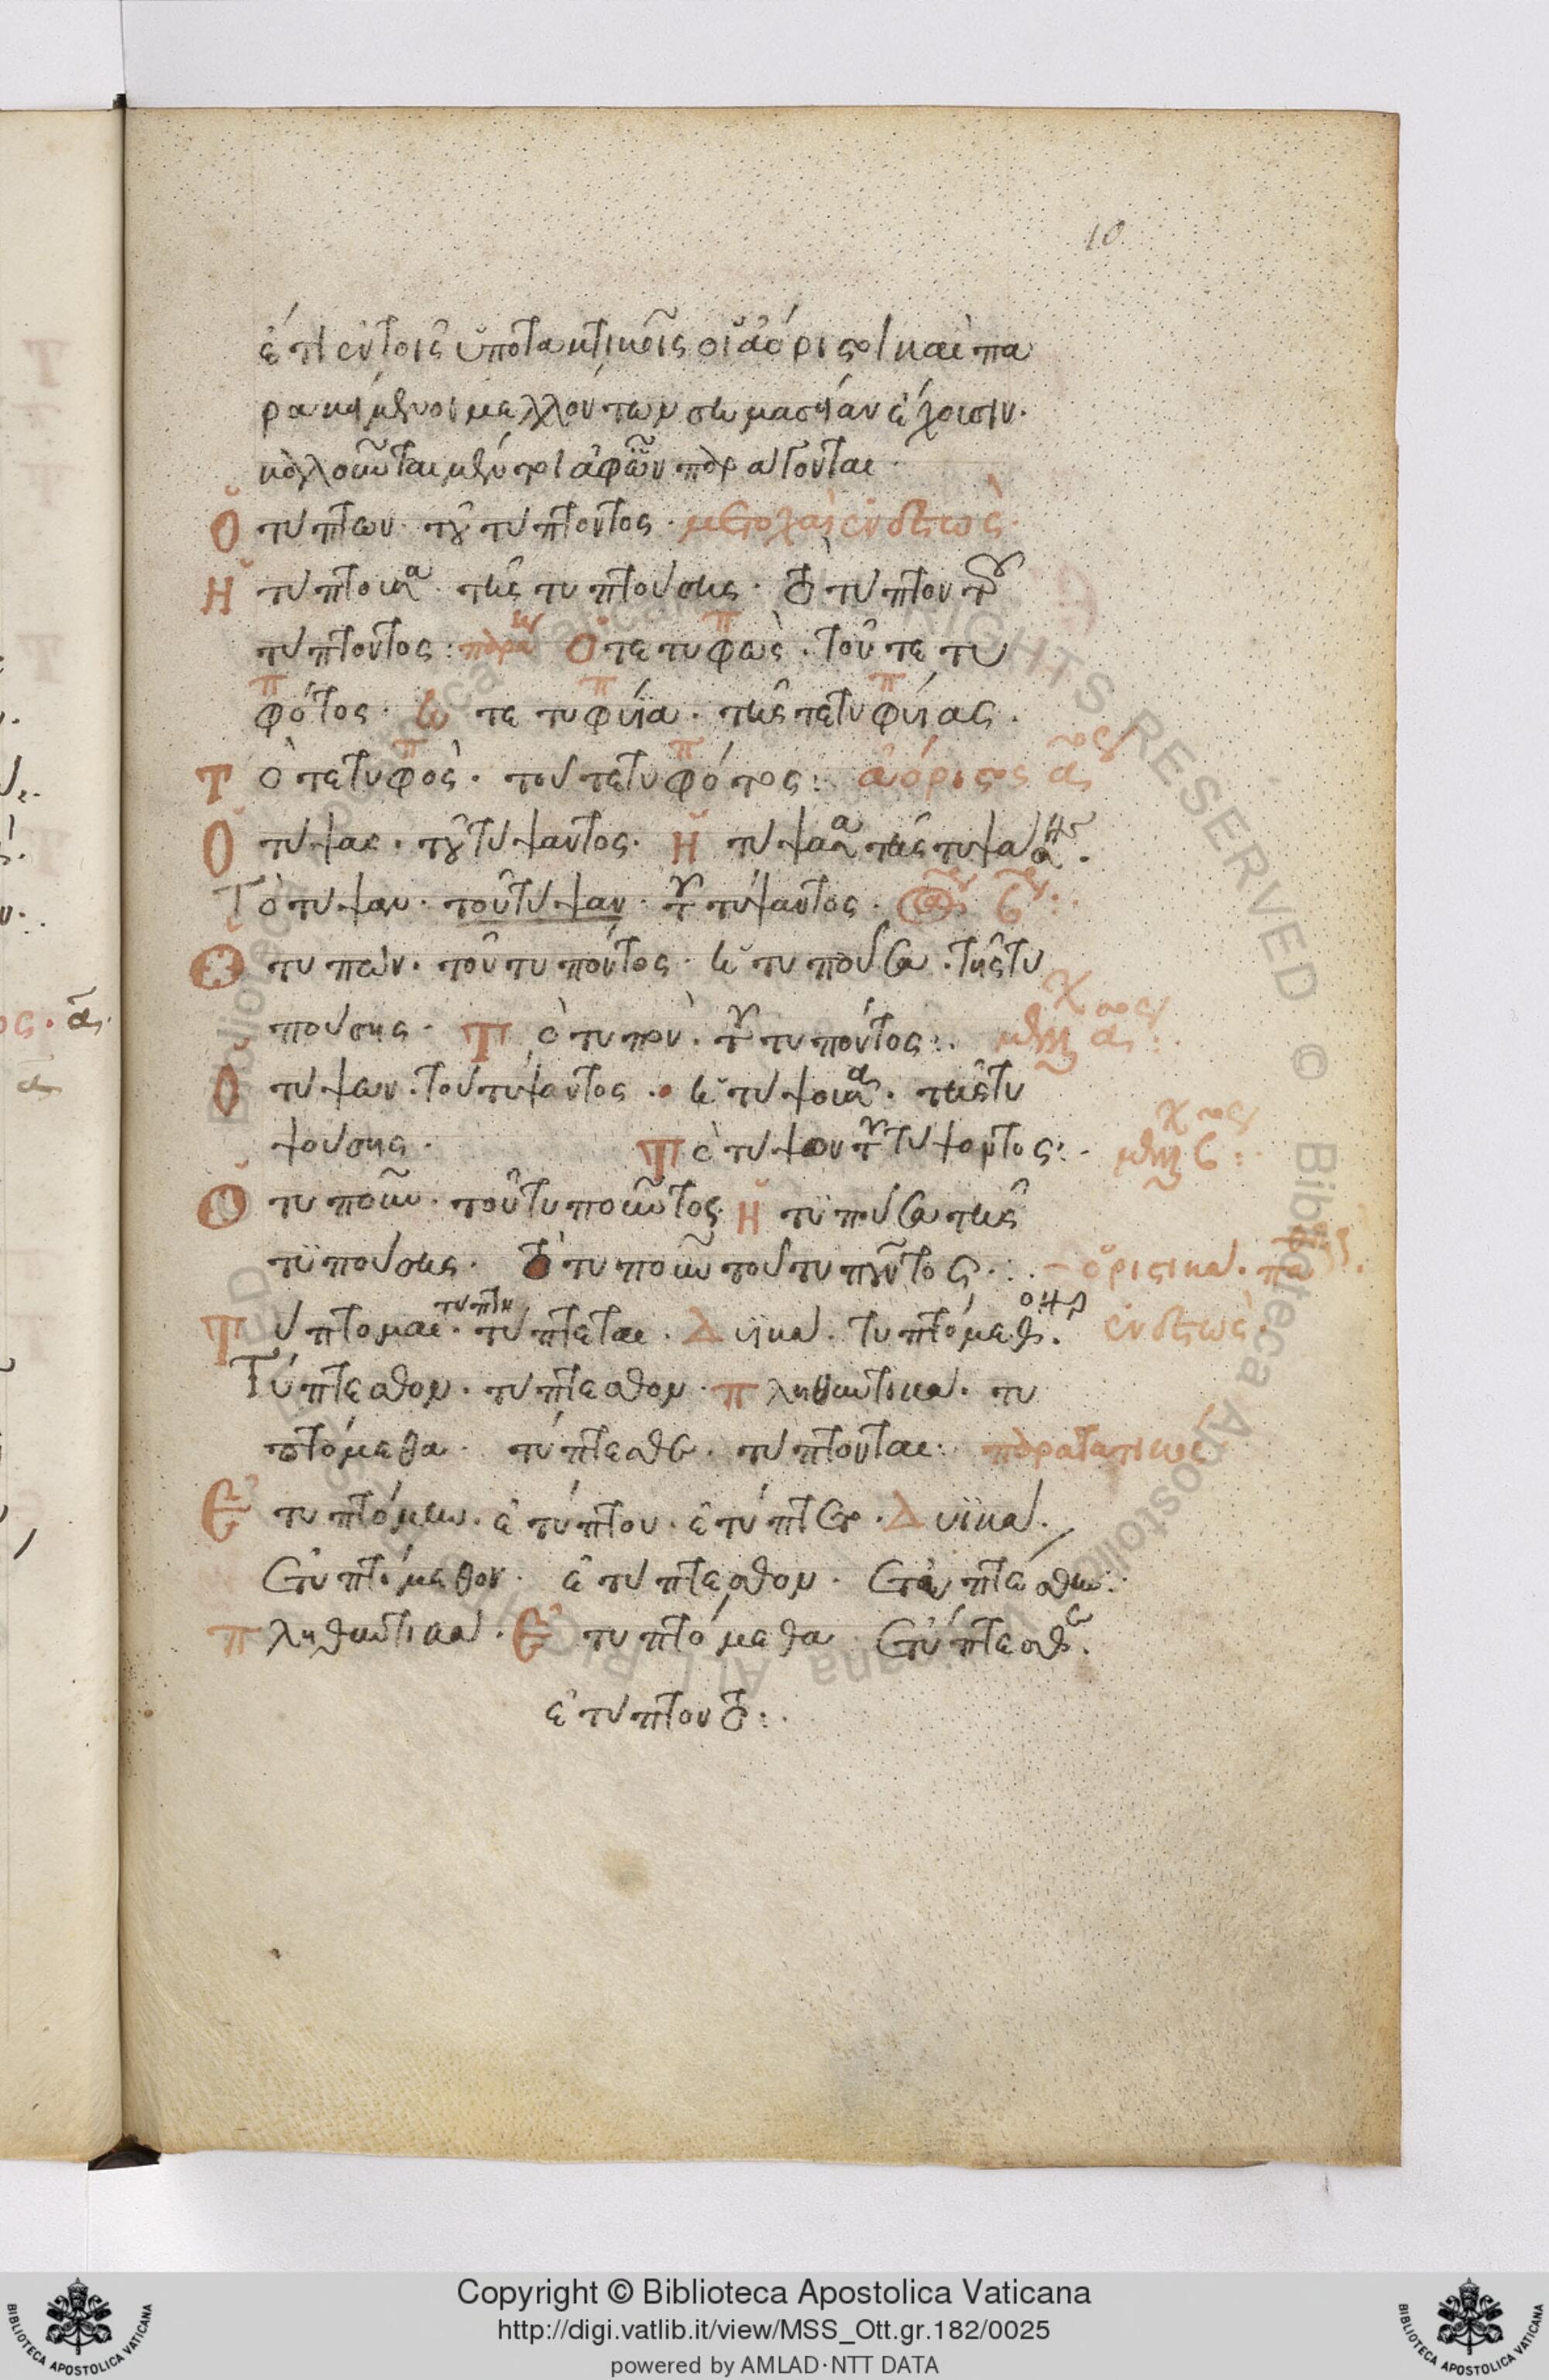 10
ἔτι ἐν τοῖς ὑποτακτικοῖς οἱ ἀόριστοι καὶ πα
ρακείμενοι μελλόντων σημασίαν ἔχουσιν.
τυπτων. τοῦ τυπτοντος. μετοχαὶ ἐνεστως
Η τυπτουσα. τῆς τυπτούσης. Τὸ τυπτον τοῦ
τυπτοντος: παρακ Ὁ τετυφὼς. τοῦ τετυ
φότος. ἡ τετυφυῖα. τῆς τετυφυίας.
Τὸ τετυφὸς. του τετυφότος: ἀόριστος α
Ὁ τυψας. τοῦ τύψαντος. Ἡ τυψασα τῆς τυψάσης.
Τὸ τυψαν. τοῦ τύψαν. τοῦ τύψαντος.
Ὁ τυπὼν. τοῦ τυπόντος. ἡ τυποῦσα. τῆς τυ
πούσης. Τὸ τυπὸν. τοῦ τυπόντος: μελλ α:
Ὁ τυψων. του τυψοντος. ἡ τυψουσα. τῆς τυ
ψούσης. Τὸ τυψον τοῦ τυψοντος: μελλ β:
Ὁ τυπῶν. τοῦ τυποῦντος. Ἡ τυποῦσα τῆς
τυπούσης. Τὸ τυποῦν τοῦ τυποῦντος. ὁριστικα. παθ
Τυπτομαι. τυπτη τυπτεται. Δυϊκα. τυπτόμεθον. ἐνεστως.
Τύπτεσθον. τυπτεσθον. πληθυντικα. τυ
πτόμεθα. τύπτεσθε. τυπτονται: παρατατικος
Ἐτυπτόμην. ἐτύπτου. ἐτύπτετο. Δυϊκα.
ἐτυπτόμεθον. ἐτυπτεσθον. ἐτυπτέσθην:
πληθυντικα. Ἐτυπτόμεθα. ἐτύπτεσθε.
ἐτυπτοντο:
Copyright © Biblioteca Apostolica Vaticana
http://digi.vatlib.it/view/MSS_Ott.gr.182/0025
powered by AMLAD·NTT DATA
BIBLIOTECA APOSTOLICA VATICANA
BIBLIOTECA APOSTOLICA VATICANA